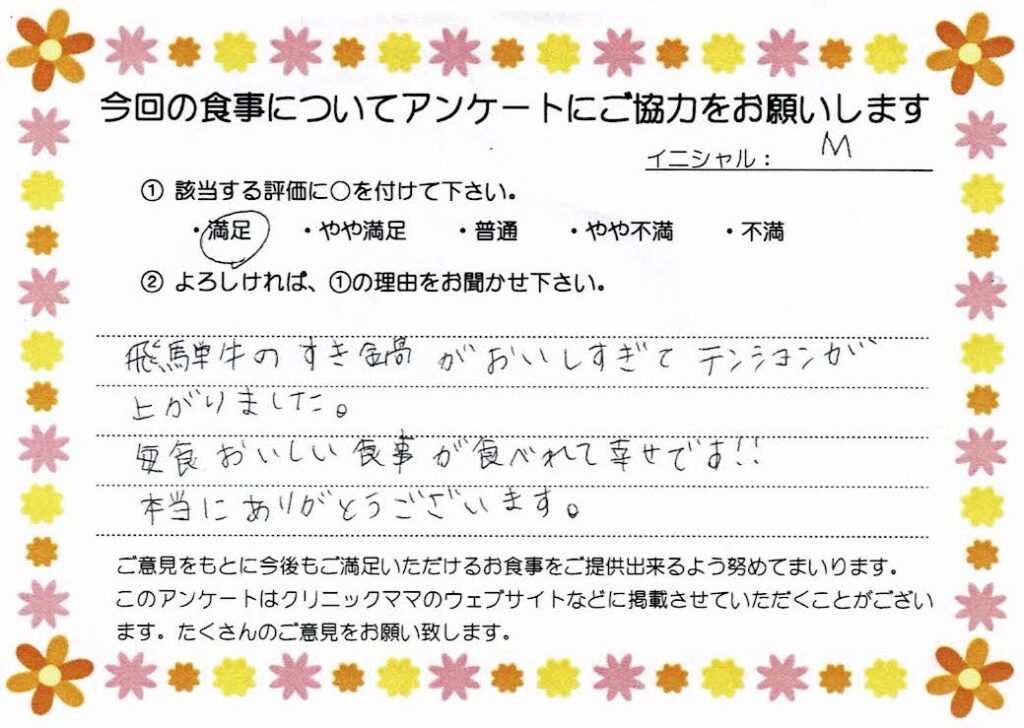 今回の食事についてアンケートにご協力をお願いします
イニシャル： M
① 該当する評価に○を付けて下さい。
・満足 ・やや満足 ・普通 ・やや不満 ・不満
② よろしければ、①の理由をお聞かせ下さい。
飛騨牛のすき鍋がおいしすぎてテンションが
上がりました。
毎食おいしい食事が食べれて幸せです!!
本当にありがとうございます。
ご意見をもとに今後もご満足いただけるお食事をご提供出来るよう努めてまいります。
このアンケートはクリニックママのウェブサイトなどに掲載させていただくことがござい
ます。たくさんのご意見をお願い致します。